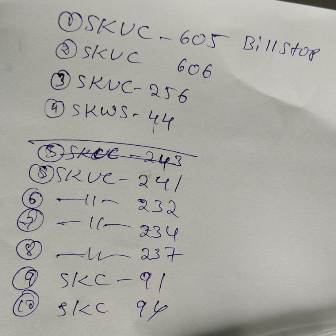 ① SKUC - 605 Bill Stop
② SKUC 606
③ SKUC - 256
④ SKWS - 44
⑤ SKUC - 243
⑤ SKUC - 241
⑥ —〃— 232
⑦ —〃— 234
⑧ —〃— 237
⑨ SKC - 91
⑩ SKC 94